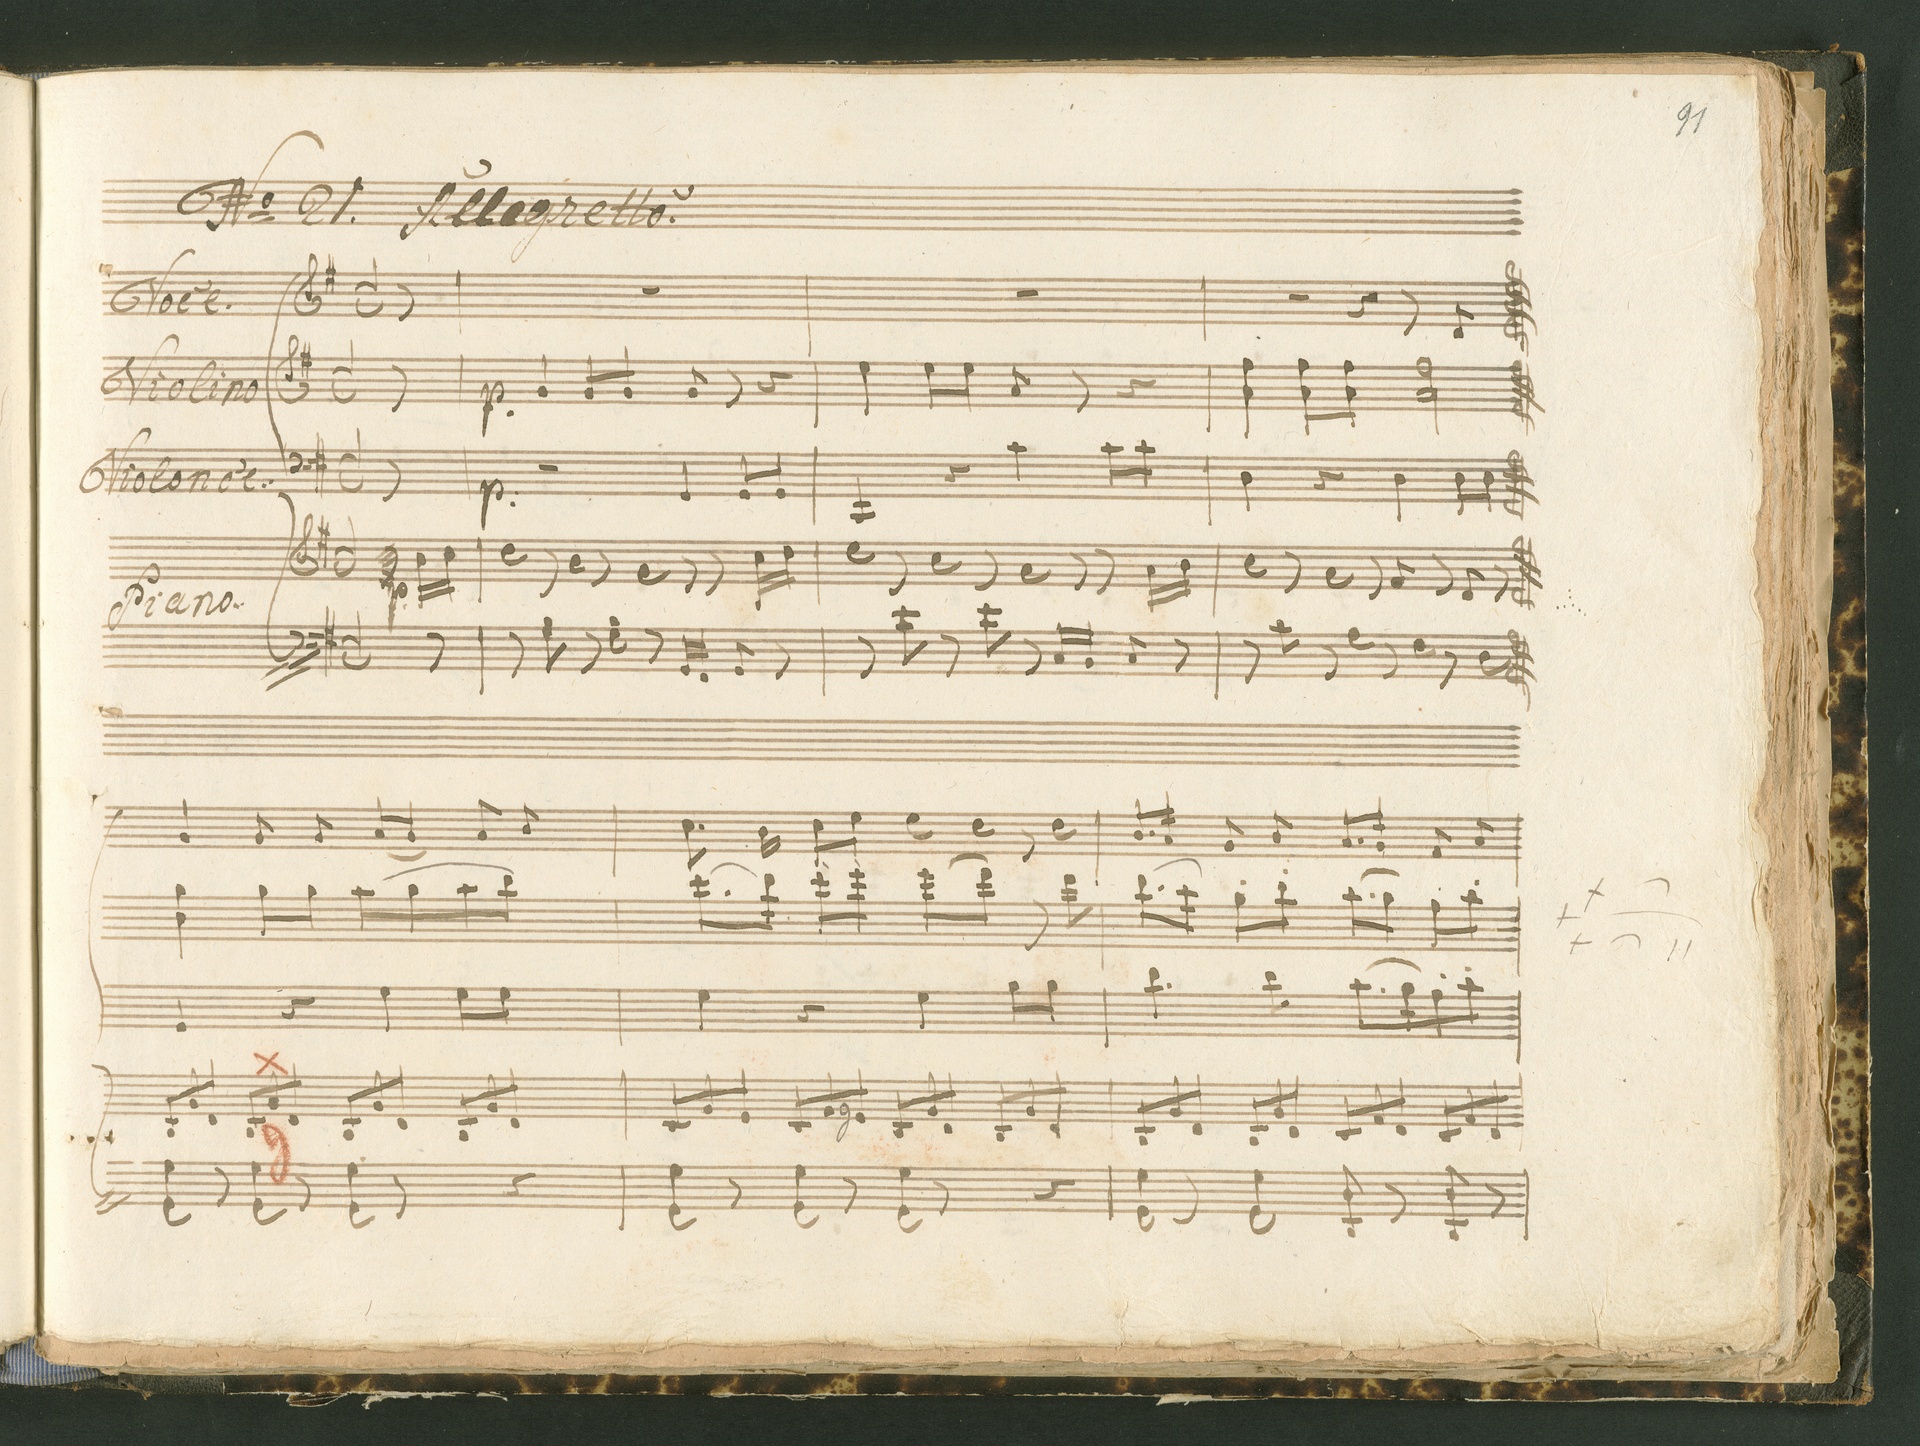 91
No 21. Allegretto.
Voce.
Violino
p.
Violonce.
p.
p.
Piano.